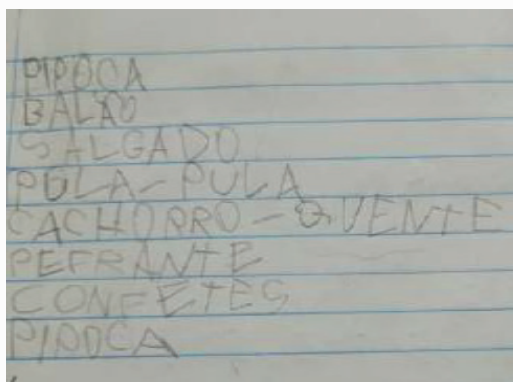 PIPOCA
BALÃO
SALGADO
PULA-PULA
CACHORRO-QUENTE
PEFRANTE
CONFETES
PIPOCA